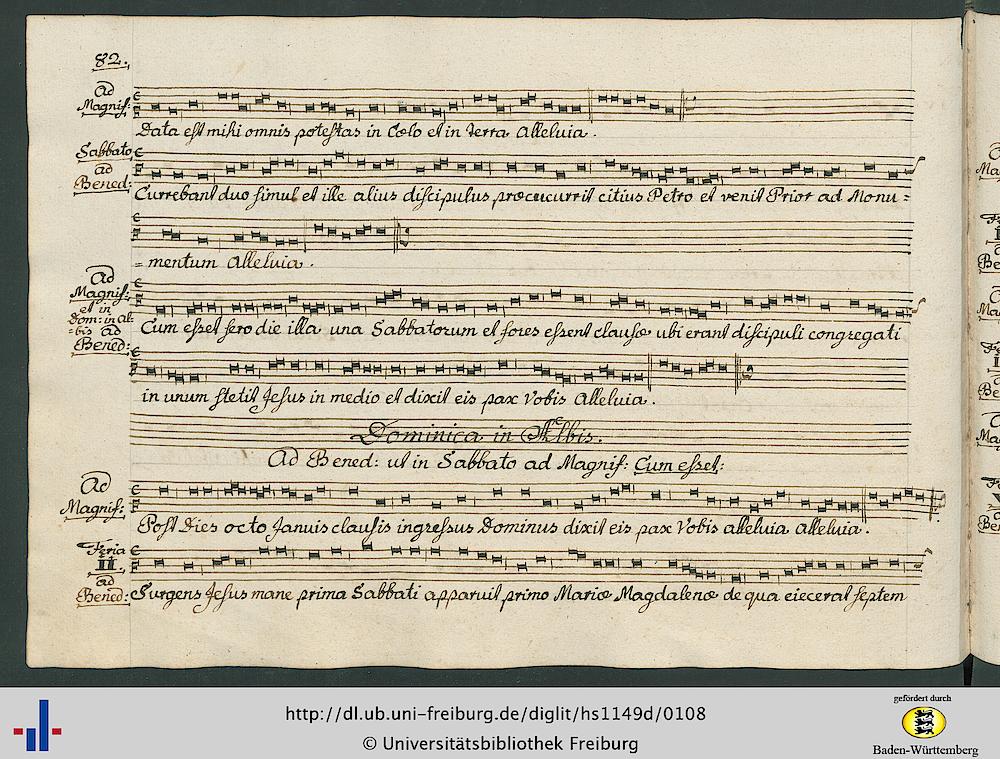 82.
Ad
Magnif:
Data est mihi omnis potestas in Cœlo et in terra Alleluia.
Sabbato
ad
Bened:
Currebant duo simul et ille alius discipulus præcucurrit citius Petro et venit Prior ad Monu =
= mentum Alleluia.
Ad
Magnif:
et in
Dom: in Al:
=bis ad
Bened:
Cum esset sero die illa una Sabbatorum et fores essent clausæ ubi erant discipuli congregati
in unum stetit Jesus in medio et dixit eis pax Vobis Alleluia.
Dominica in Albis.
Ad Bened: ut in Sabbato ad Magnif: Cum esset:
Ad
Magnif:
Post Dies octo Januis clausis ingressus Dominus dixit eis pax Vobis alleluia alleluia.
Feria
II.
ad
Bened:
Surgens Jesus mane prima Sabbati apparuit primo Mariæ Magdalenæ de qua eiecerat septem
http://dl.ub.uni-freiburg.de/diglit/hs1149d/0108
© Universitätsbibliothek Freiburg
gefördert durch
Baden-Württemberg